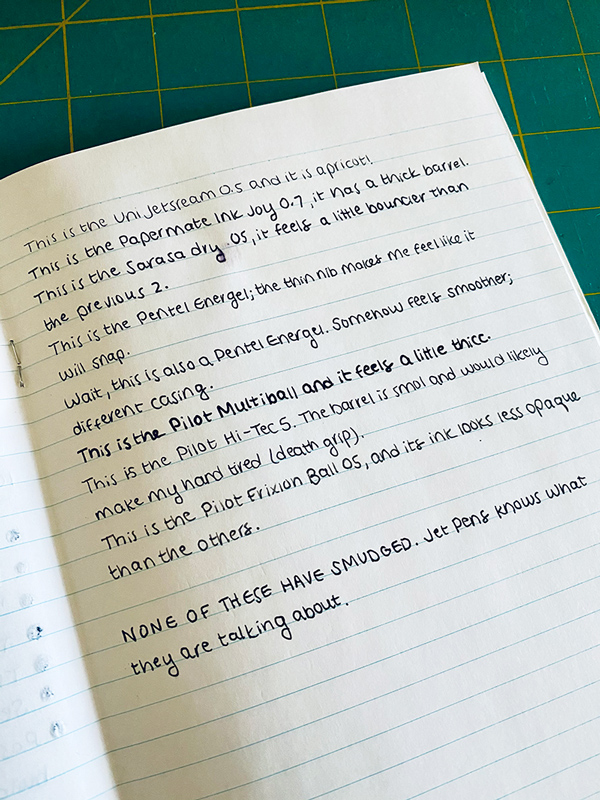 This is the Uni Jetsream 0.5 and it is apricot!
This is the Papermate Ink Joy 0.7, it has a thick barrel.
This is the Sarasa dry .05, it feels a little bouncier than
the previous 2.
This is the Pentel Energel; the thin nib makes me feel like it
will snap.
Wait, this is also a Pentel Energel. Somehow feels smoother;
different casing.
This is the Pilot Multiball and it feels a little thicc.
This is the Pilot Hi-Tec 5. The barrel is smol and would likely
make my hand tired (death grip).
This is the Pilot Frixion Ball 05, and its ink looks less opaque
than the others.
NONE OF THESE HAVE SMUDGED. Jet Pens knows what
they are talking about.